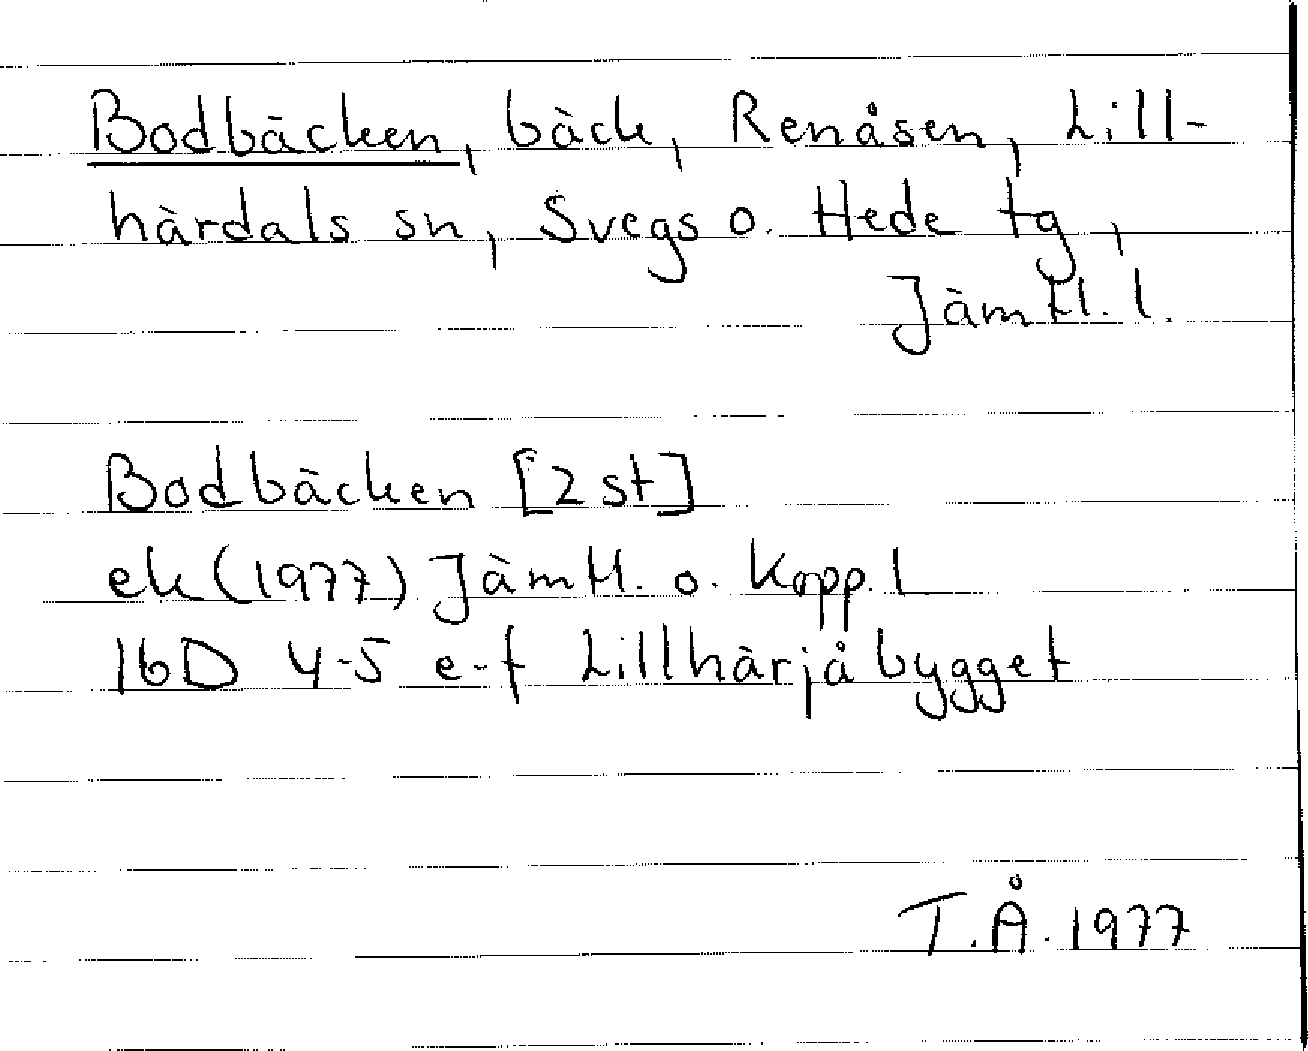 Bodbäcken, bäck, Renåsen, Lill-
härdals sn, Svegs o. Hede tg,
Jämtl. l.
Bodbäcken [2 st]
ek (1977) Jämtl. o. Kopp. l
16D 4-5 e-f Lillhärjåbygget
T.Å. 1977